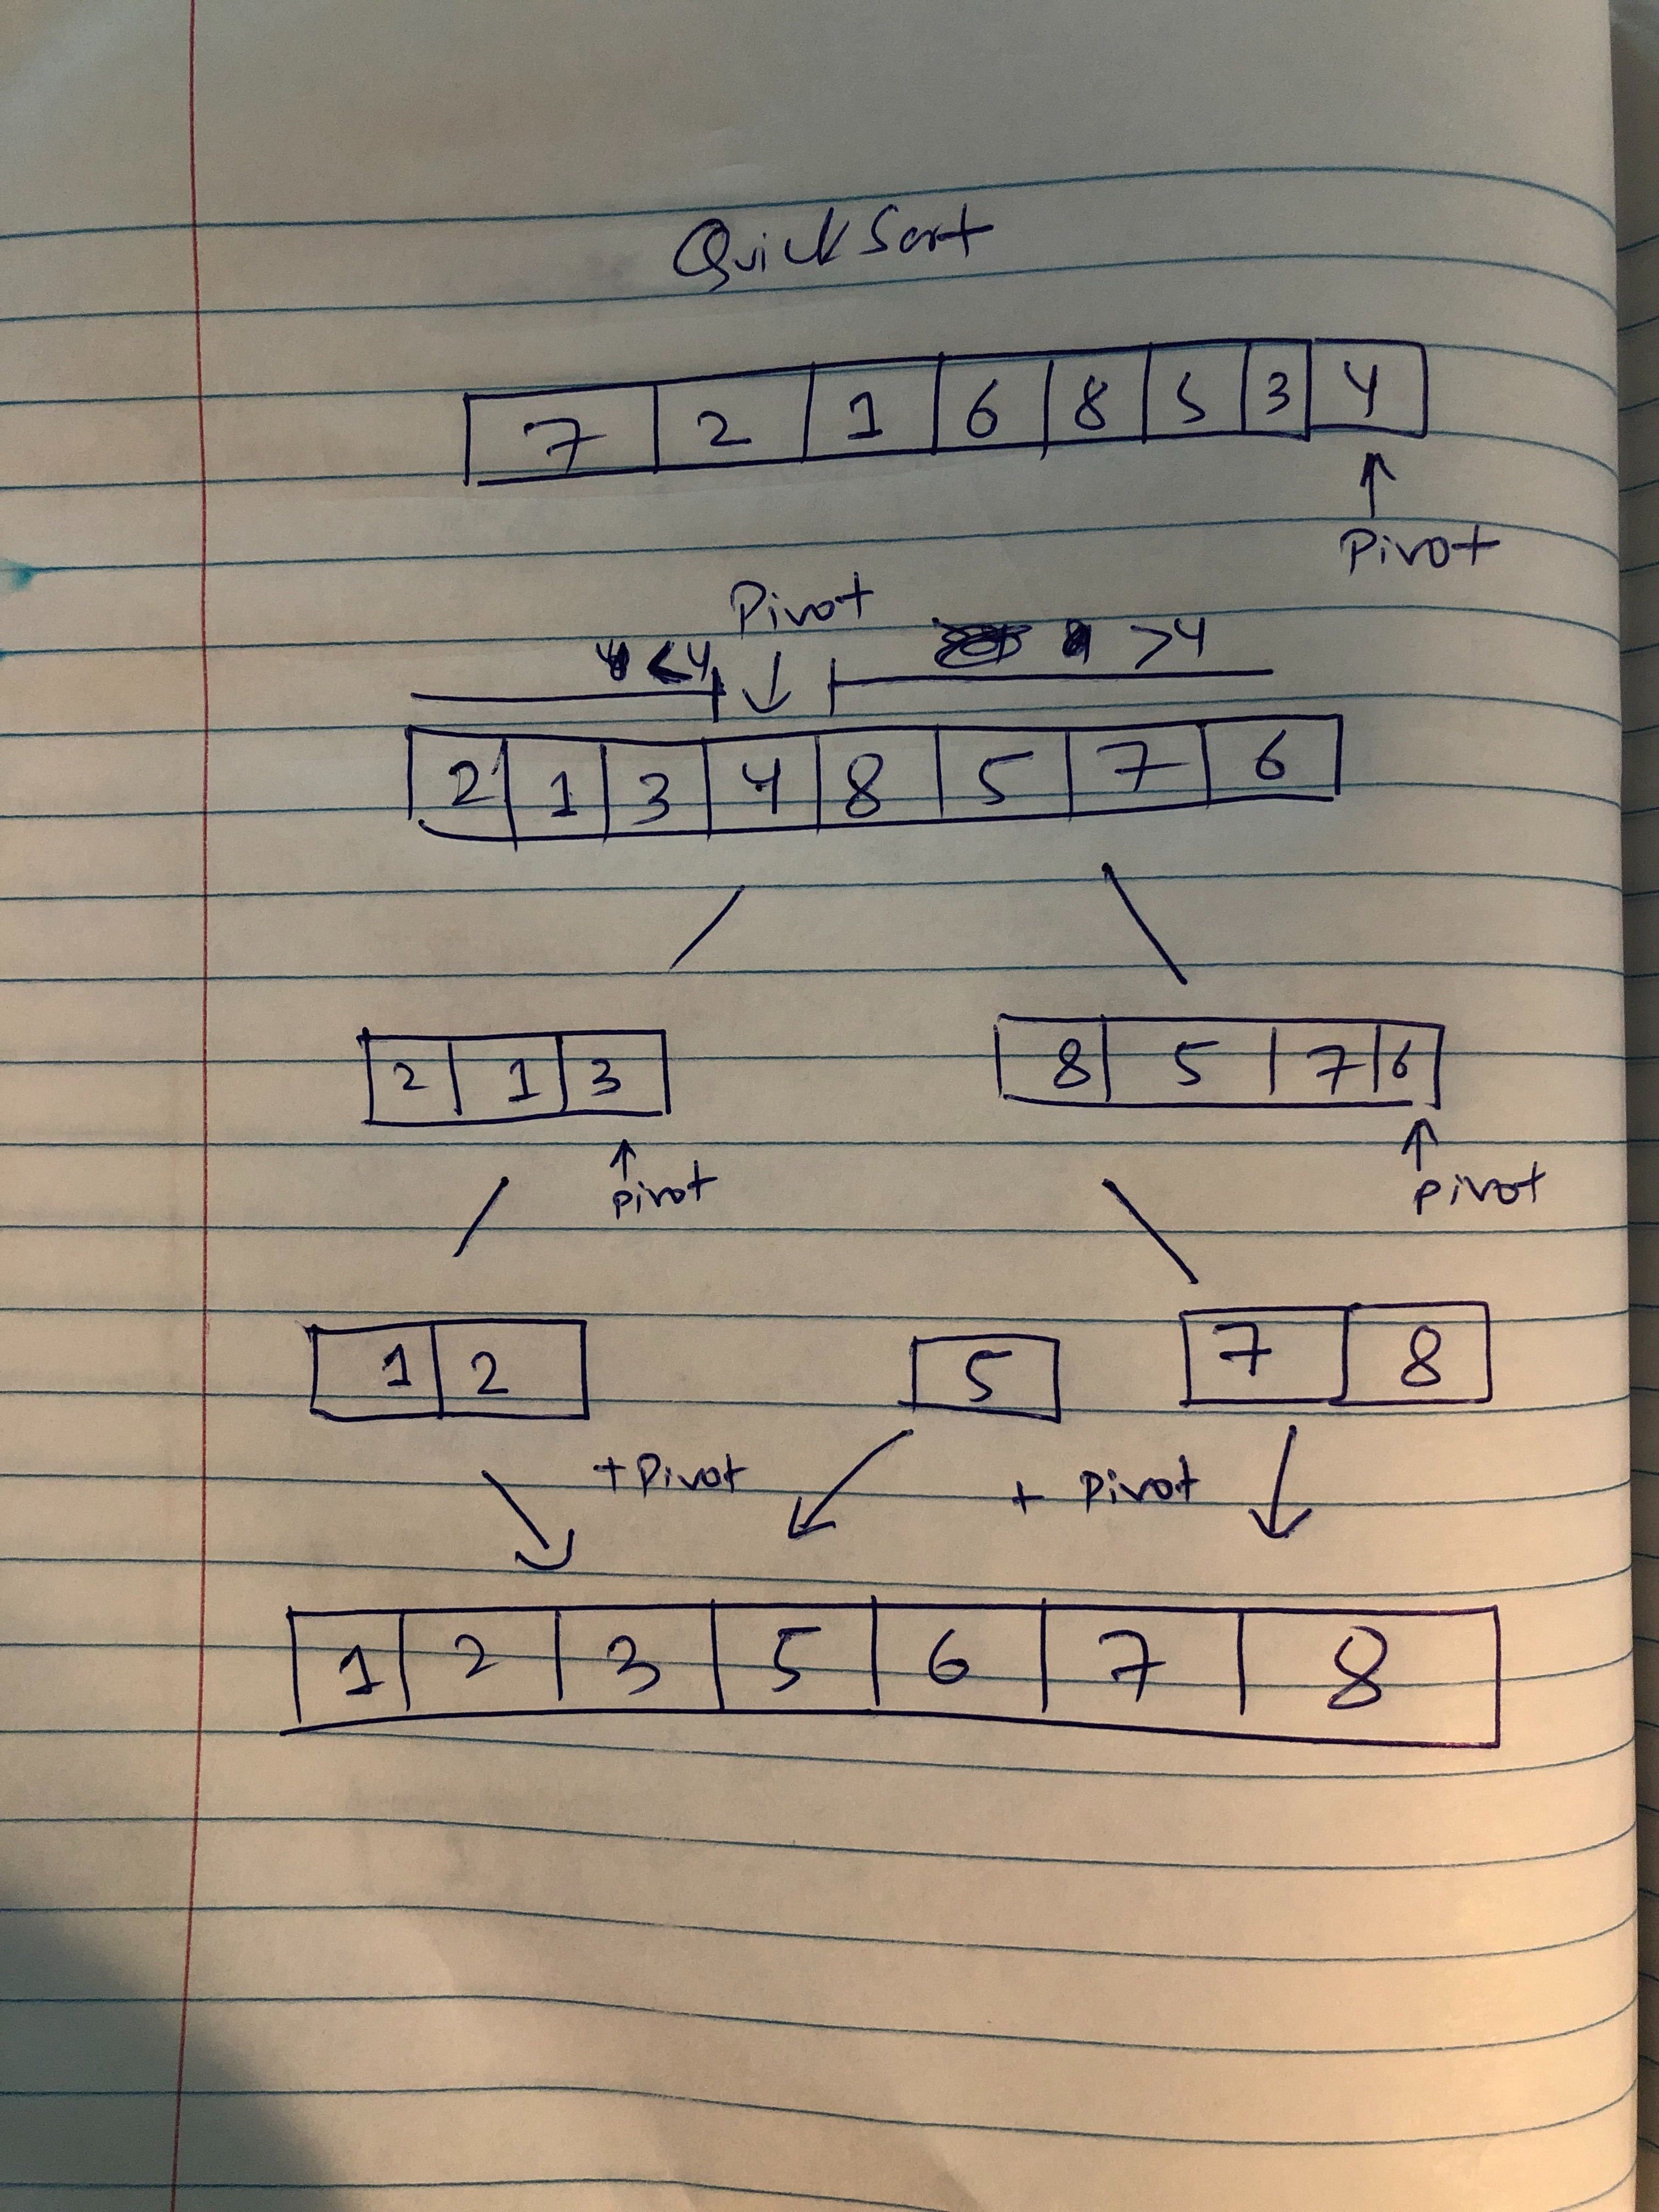 QuickSort
7 2 1 6 8 5 3 4
Pivot
Pivot
<4 >4
2 1 3 4 8 5 7 6
2 1 3 8 5 7 6
pivot pivot
1 2 5 7 8
+ Pivot + Pivot
1 2 3 5 6 7 8